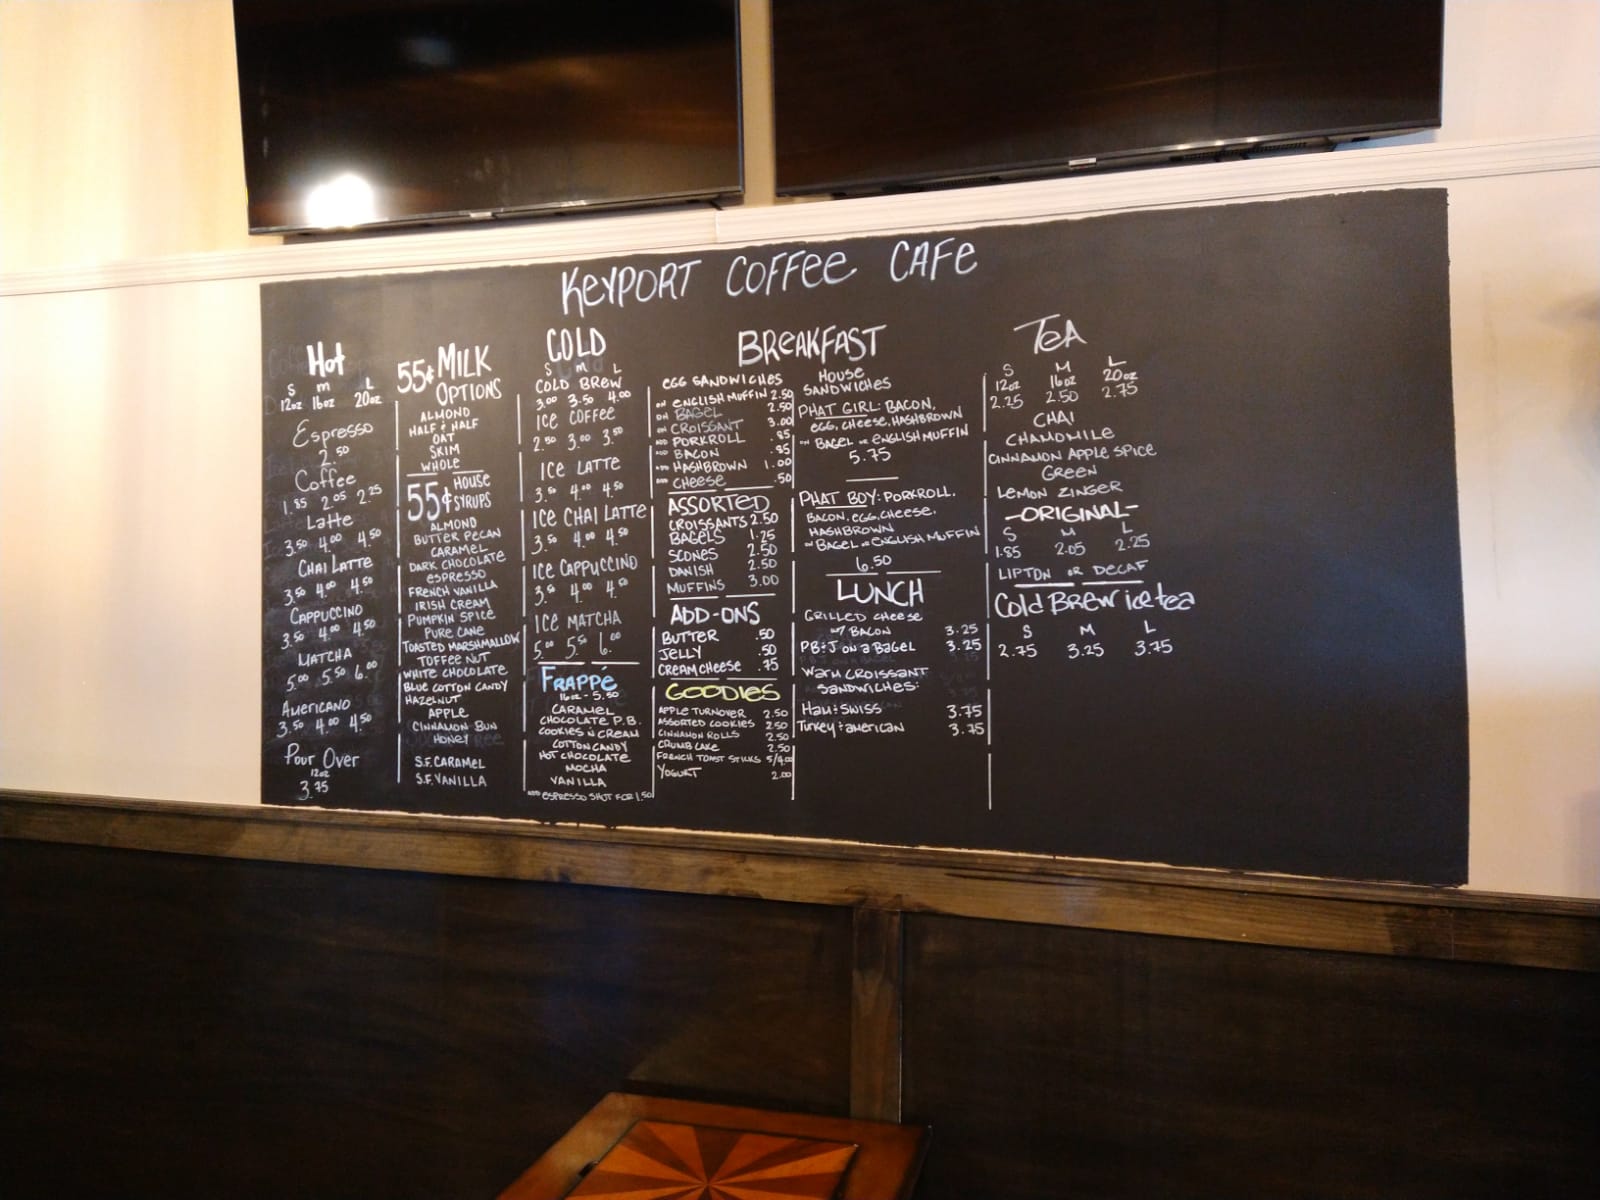 KEYPORT COFFEE CAFE
Hot
S M L
12oz 16oz 20oz
Espresso
2.50
Coffee
1.85 2.05 2.25
Latte
3.50 4.00 4.50
CHAI LATTE
3.50 4.00 4.50
CAPPUCCINO
3.50 4.00 4.50
MATCHA
5.00 5.50 6.00
AMERICANO
3.50 4.00 4.50
Pour Over
12oz
3.75
55¢ MILK
OPTIONS
ALMOND
HALF & HALF
OAT
SKIM
WHOLE
55¢ HOUSE
SYRUPS
ALMOND
BUTTER PECAN
CARAMEL
DARK CHOCOLATE
ESPRESSO
FRENCH VANILLA
IRISH CREAM
PUMPKIN SPICE
PURE CANE
TOASTED MARSHMALLOW
TOFFEE NUT
WHITE CHOCOLATE
BLUE COTTON CANDY
HAZELNUT
APPLE
CINNAMON BUN
HONEY
S.F. CARAMEL
S.F. VANILLA
COLD
S M L
COLD BREW
3.00 3.50 4.00
ICE COFFEE
2.50 3.00 3.50
ICE LATTE
3.50 4.00 4.50
ICE CHAI LATTE
3.50 4.00 4.50
ICE CAPPUCCINO
3.50 4.00 4.50
ICE MATCHA
5.00 5.50 6.00
FRAPPÉ
16oz - 5.50
CARAMEL
CHOCOLATE P.B.
COOKIES N CREAM
COTTON CANDY
HOT CHOCOLATE
MOCHA
VANILLA
ADD ESPRESSO SHOT FOR 1.50
BREAKFAST
EGG SANDWICHES
ON ENGLISH MUFFIN 2.50
ON BAGEL 2.50
ON CROISSANT 3.00
ADD PORKROLL .85
ADD BACON .85
ADD HASHBROWN 1.00
ADD CHEESE .50
ASSORTED
CROISSANTS 2.50
BAGELS 1.25
SCONES 2.50
DANISH 2.50
MUFFINS 3.00
ADD-ONS
BUTTER .50
JELLY .50
CREAM CHEESE .75
GOODIES
APPLE TURNOVER 2.50
ASSORTED COOKIES 2.50
CINNAMON ROLLS 2.50
CRUMB CAKE 2.50
FRENCH TOAST STICKS 5/4.00
YOGURT 2.00
HOUSE
SANDWICHES
PHAT GIRL: BACON,
EGG, CHEESE, HASHBROWN
ON BAGEL OR ENGLISH MUFFIN
5.75
PHAT BOY: PORKROLL,
BACON, EGG, CHEESE,
HASHBROWN
ON BAGEL OR ENGLISH MUFFIN
6.50
LUNCH
GRILLED CHEESE
W/ BACON 3.25
PB&J ON A BAGEL 3.25
WARM CROISSANT
SANDWICHES:
HAM & SWISS 3.75
Turkey & american 3.75
TEA
S M L
12oz 16oz 20oz
2.25 2.50 2.75
CHAI
CHAMOMILE
CINNAMON APPLE SPICE
GREEN
LEMON ZINGER
-ORIGINAL-
S M L
1.85 2.05 2.25
LIPTON OR DECAF
Cold BREW ice tea
S M L
2.75 3.25 3.75